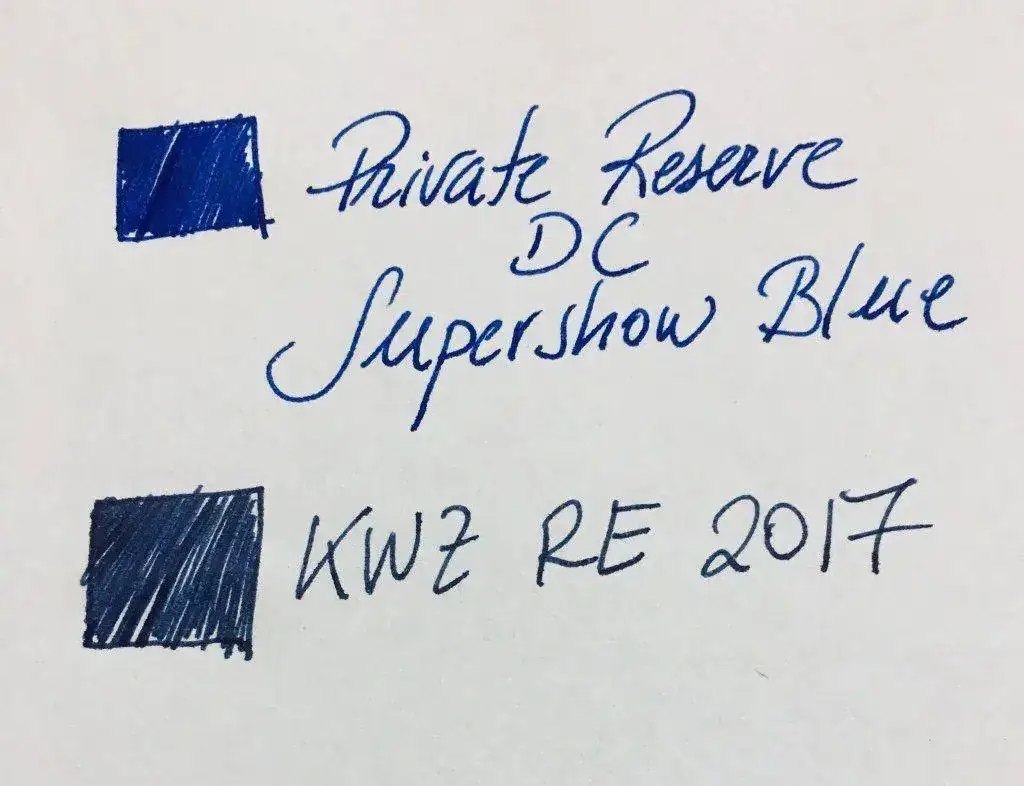 Private Reserve
DC
Supershow Blue
KWZ RE 2017